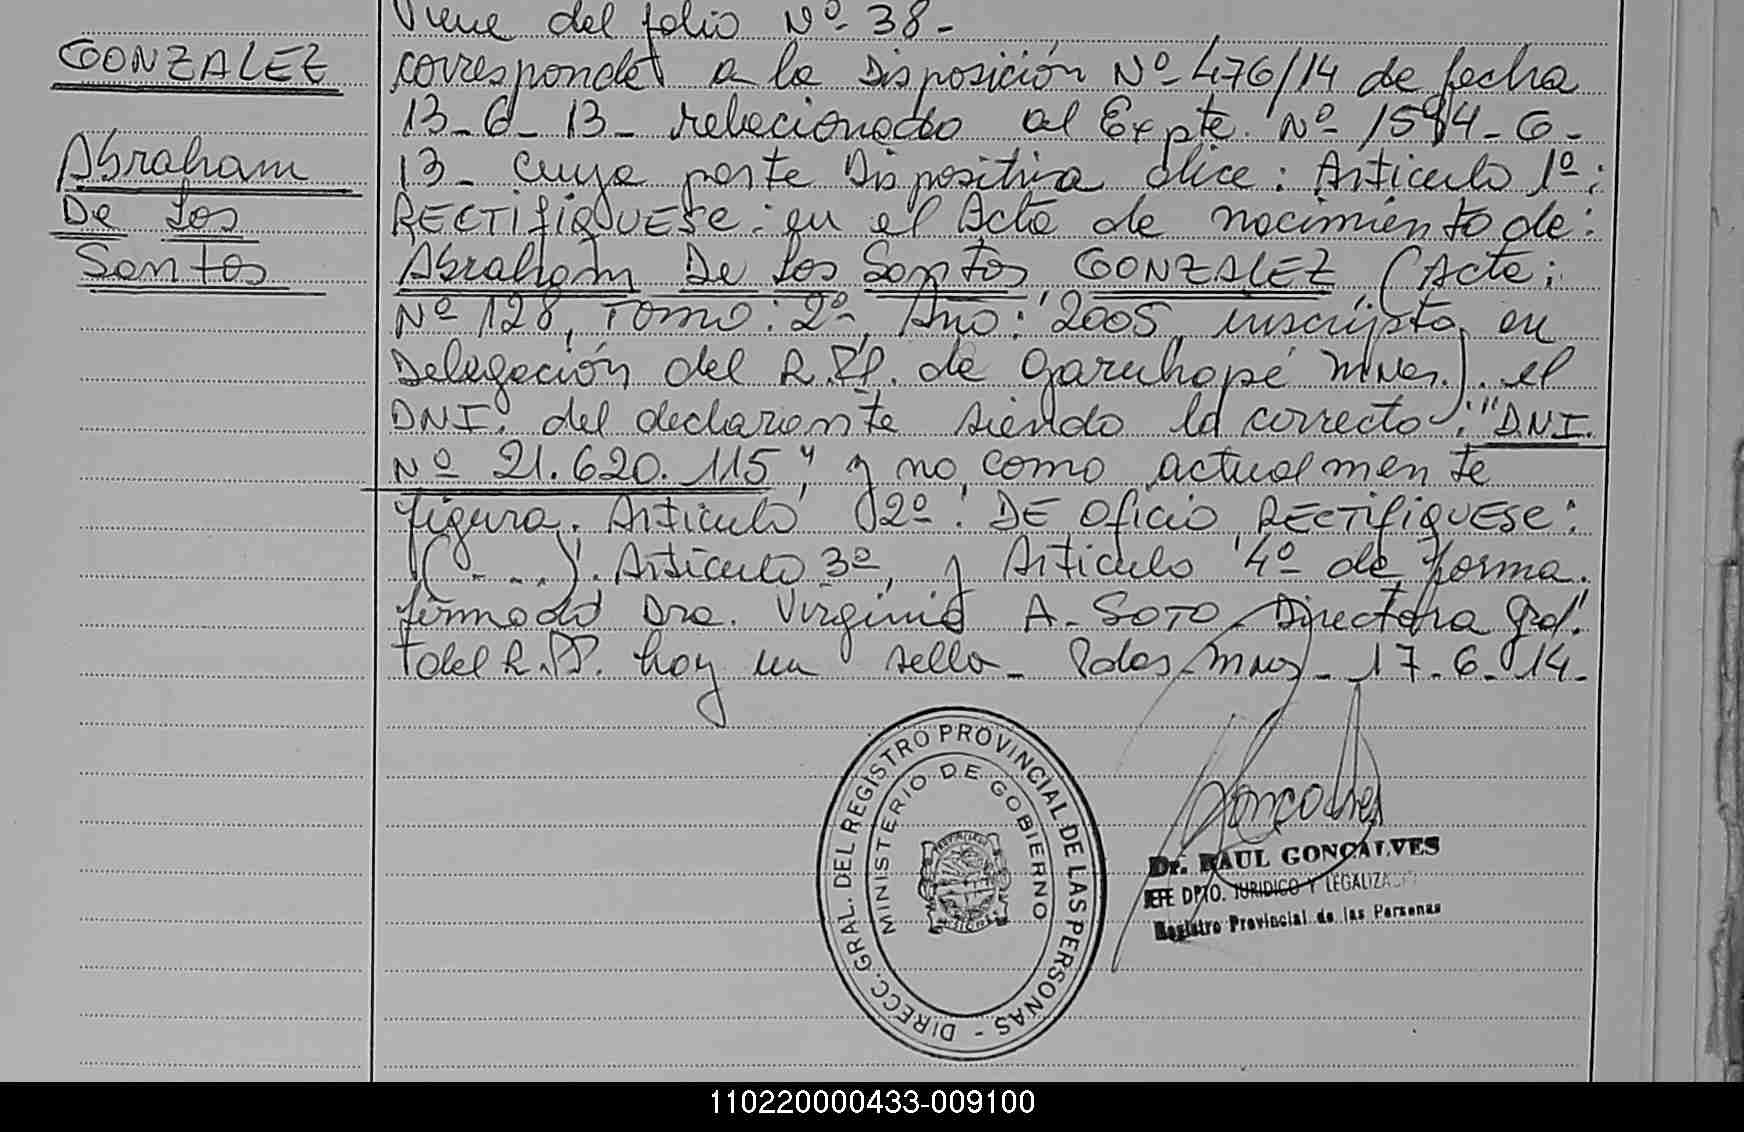 Viene del folio Nº 38-
GONZALEZ
Abraham
De Los
Santos
corresponde a la Disposición Nº 476/14 de fecha
13-6-13- relacionado al Expte. Nº 1594-G-
13- cuya parte Dispositiva dice: Articulo 1º:
RECTIFIQUESE: en el Acta de nacimiento de:
Abraham De Los Santos GONZALEZ (Acta:
Nº 128, Tomo: 2º, Año: 2005, inscripta en
Delegación del R.PP. de Garuhapé Mnes.). el
DNI. del declarante siendo lo correcto: "DNI.
Nº 21.620.115" y no como actualmente
figura. Articulo 2º: DE Oficio RECTIFIQUESE:
(....). Articulo 3º, y Articulo 4º de forma.
firmado Dra. Virginia A. SOTO Directora Gral.
del R.PP. hay un sello- Pdas Mnes- 17-6-14-
DIRECC. GRAL. DEL REGISTRO PROVINCIAL DE LAS PERSONAS -
MINISTERIO DE GOBIERNO
Dr. RAUL GONÇALVES
JEFE DPTO. JURIDICO Y
Registro Provincial de las Personas
110220000433-009100